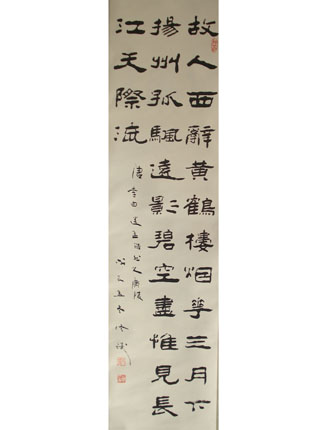 故人西辭黃鶴樓烟華三月下
揚州孤颿遠影碧空盡惟見長
江天際流
唐李白送孟浩然之廣陵